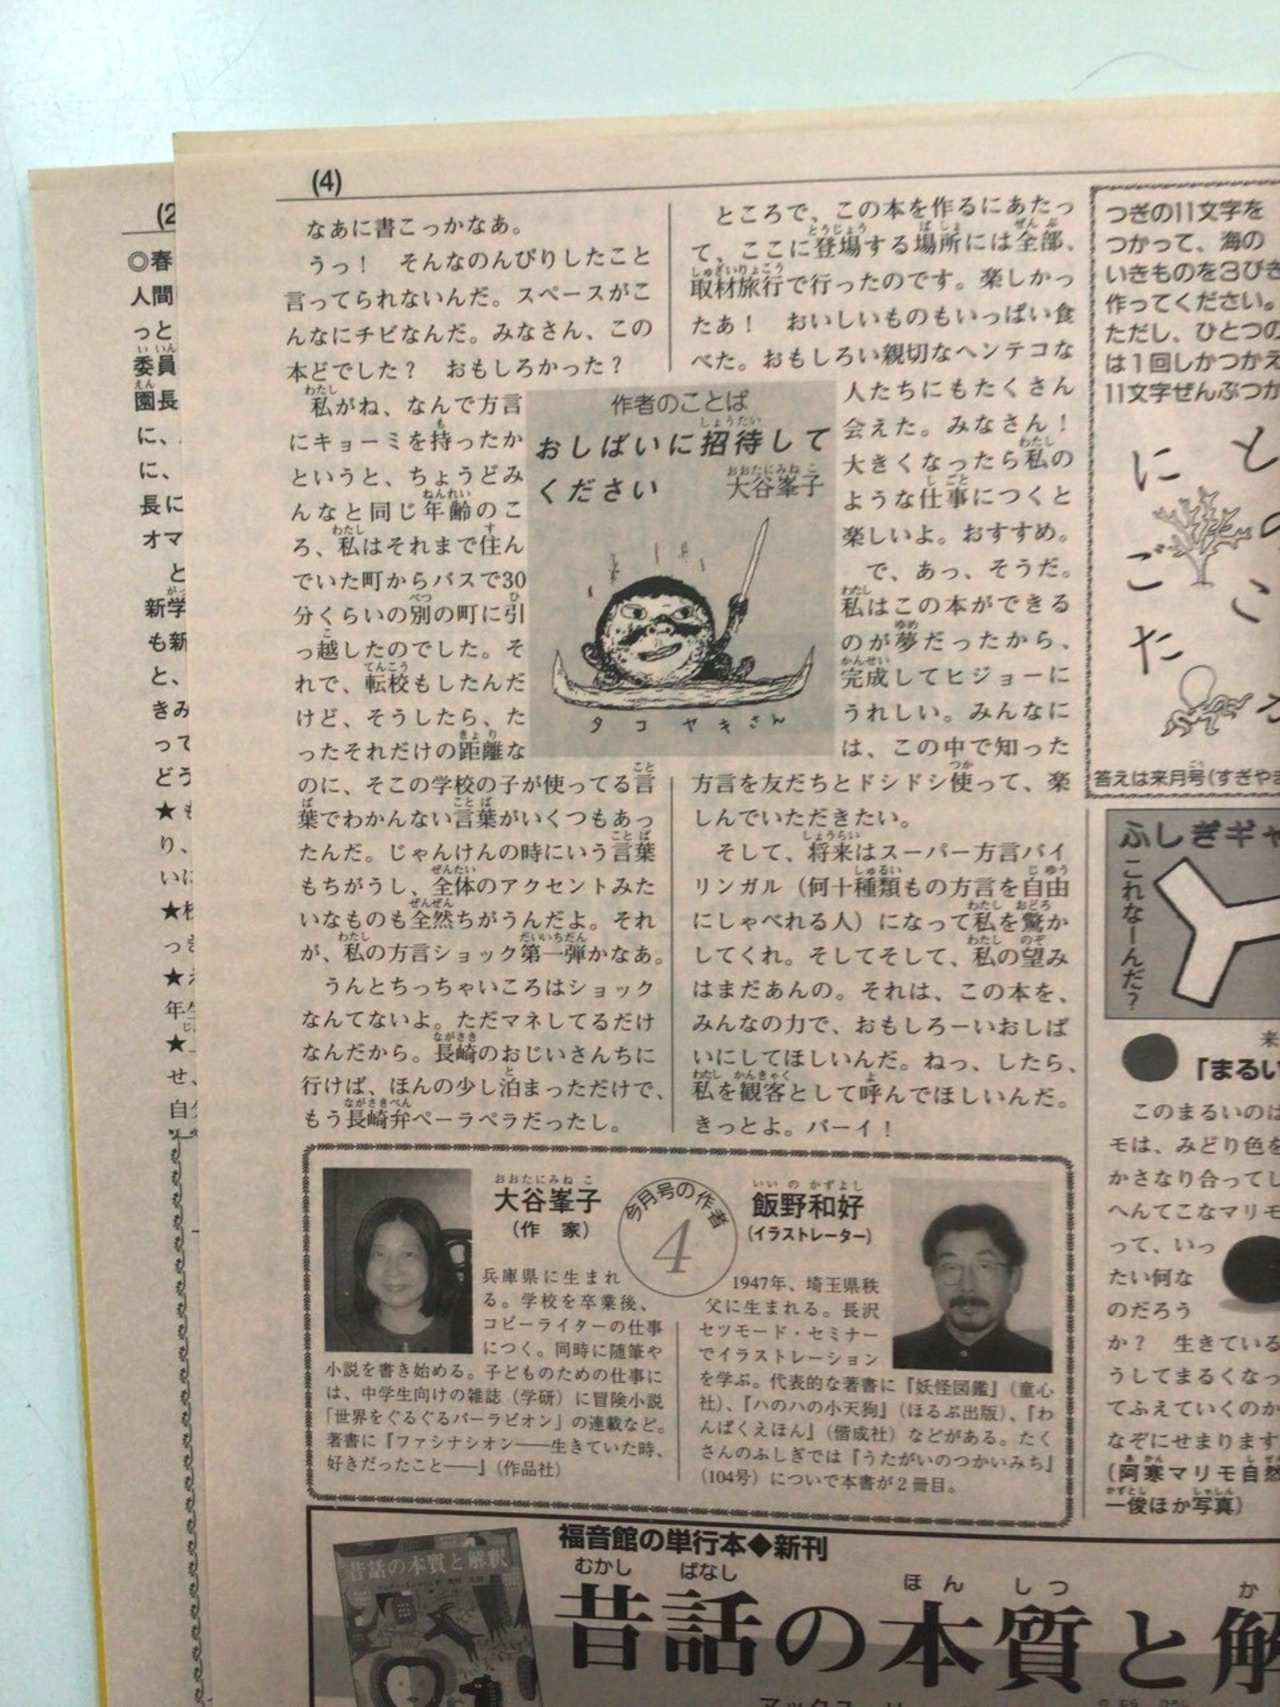 (4)
なあに書こっかなあ。
うっ！　そんなのんびりしたこと
言ってられないんだ。スペースがこ
んなにチビなんだ。みなさん、この
本どでした？　おもしろかった？
私がね、なんで方言
にキョーミを持ったか
というと、ちょうどみ
んなと同じ年齢のこ
ろ、私はそれまで住ん
でいた町からバスで30
分くらいの別の町に引
っ越したのでした。そ
れで、転校もしたんだ
けど、そうしたら、た
ったそれだけの距離な
のに、そこの学校の子が使ってる言
葉でわかんない言葉がいくつもあっ
たんだ。じゃんけんの時にいう言葉
もちがうし、全体のアクセントみた
いなものも全然ちがうんだよ。それ
が、私の方言ショック第一弾かなあ。
うんとちっちゃいころはショック
なんてないよ。ただマネしてるだけ
なんだから。長崎のおじいさんちに
行けば、ほんの少し泊まっただけで、
もう長崎弁ペーラペラだったし。
作者のことば
おしばいに招待して
ください
大谷峯子
タコヤキさん
ところで、この本を作るにあたっ
て、ここに登場する場所には全部、
取材旅行で行ったのです。楽しかっ
たあ！　おいしいものもいっぱい食
べた。おもしろい親切なヘンテコな
人たちにもたくさん
会えた。みなさん！
大きくなったら私の
ような仕事につくと
楽しいよ。おすすめ。
で、あっ、そうだ。
私はこの本ができる
のが夢だったから、
完成してヒジョーに
うれしい。みんなに
は、この中で知った
方言を友だちとドシドシ使って、楽
しんでいただきたい。
そして、将来はスーパー方言バイ
リンガル（何十種類もの方言を自由
にしゃべれる人）になって私を驚か
してくれ。そしてそして、私の望み
はまだあんの。それは、この本を、
みんなの力で、おもしろーいおしば
いにしてほしいんだ。ねっ、したら、
私を観客として呼んでほしいんだ。
きっとよ。バーイ！
今月号の作者
4
おおたにみねこ
大谷峯子
（作　家）
兵庫県に生まれ
る。学校を卒業後、
コピーライターの仕事
につく。同時に随筆や
小説を書き始める。子どものための仕事に
は、中学生向けの雑誌（学研）に冒険小説
「世界をぐるぐるパーラビオン」の連載など。
著書に『ファシナシオン――生きていた時、
好きだったこと――』（作品社）
いいのかずよし
飯野和好
（イラストレーター）
1947年、埼玉県秩
父に生まれる。長沢
セツモード・セミナー
でイラストレーション
を学ぶ。代表的な著書に『妖怪図鑑』（童心
社）、『ハのハの小天狗』（ほるぷ出版）、『わ
んぱくえほん』（偕成社）などがある。たく
さんのふしぎでは『うたがいのつかいみち』
（104号）についで本書が２冊目。
つぎの11文字を
つかって、海の
いきものを3びき
作ってください。
ただし、ひとつの
は1回しかつかえ
11文字ぜんぶつか
に
ご
た
と
の
こ
答えは来月号（すぎやま
ふしぎギャ
これなーんだ？
「まるい
このまるいのは
モは、みどり色を
かさなり合ってし
へんてこなマリモ
って、いっ
たい何な
のだろう
か？　生きている
うしてまるくなっ
てふえていくのか
なぞにせまります
（阿寒マリモ自然
一俊ほか写真）
福音館の単行本◆新刊
むかし ばなし ほん しつ か
昔話の本質と解
昔話の本質と解釈
◎春
人間
っと
委員
園長
に、
に、
長に
オマ
と
新学
も新
と、
きみ
って
どう
り、
いに
っき
年生
せ、